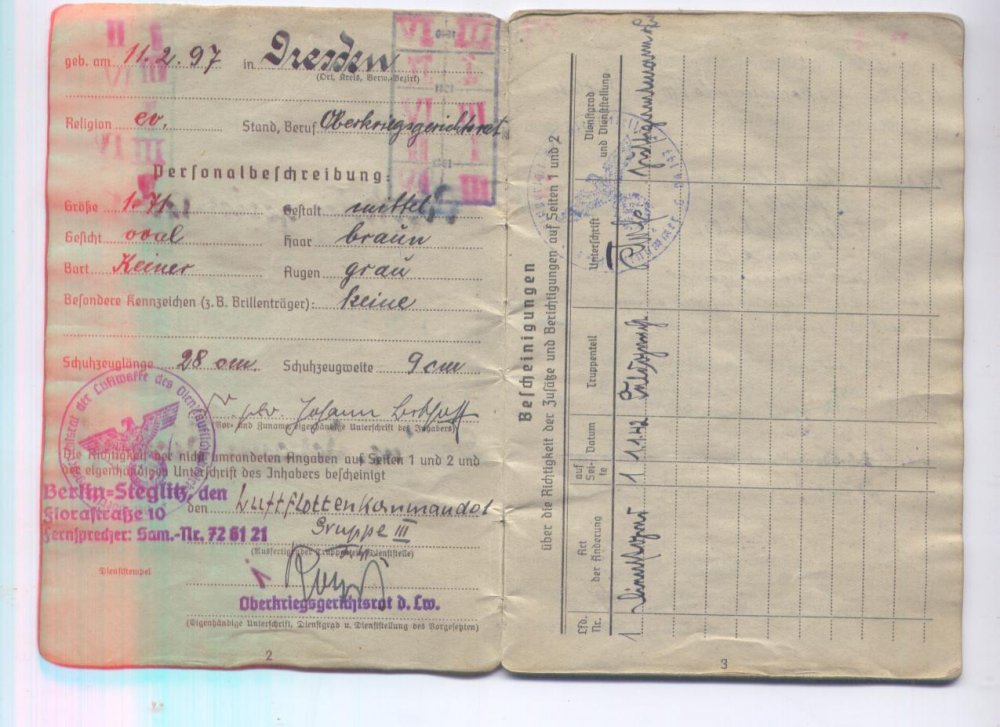 geb. am 11. 2. 97 in Dresden
(Ort, Kreis, Verw.-Bezirk)
Religion ev. Stand, Beruf Oberkriegsgerichtsrat
Personalbeschreibung:
Größe 1.71 Gestalt mittel
Gesicht oval Haar braun
Bart Keiner Augen grau
Besondere Kennzeichen (z. B. Brillenträger): keine
Schuhzeuglänge 28 cm. Schuhzeugweite 9 cm
Johann
(Vor- und Zuname, eigenhändige Unterschrift des Inhabers)
Die Richtigkeit der nicht umrandeten Angaben auf Seiten 1 und 2 und
der eigenhändigen Unterschrift des Inhabers bescheinigt
Berlin-Steglitz, den
Florastraße 10
Fernsprecher: Sam.-Nr. 72 61 21
den Luftflottenkommando 1
Gruppe III
(Ausfertigender Truppenteil, Dienststelle)
Dienststempel
Oberkriegsgerichtsrat d. Lw.
(Eigenhändige Unterschrift, Dienstgrad u. Dienststellung des Vorgesetzten)
2
Bescheinigungen
über die Richtigkeit der Zusätze und Berichtigungen auf Seiten 1 und 2
Lfd. Nr.
Art der Änderung
auf Seite
Datum
Truppenteil
Unterschrift
Dienstgrad und Dienststellung
1
1
1.1.42
3